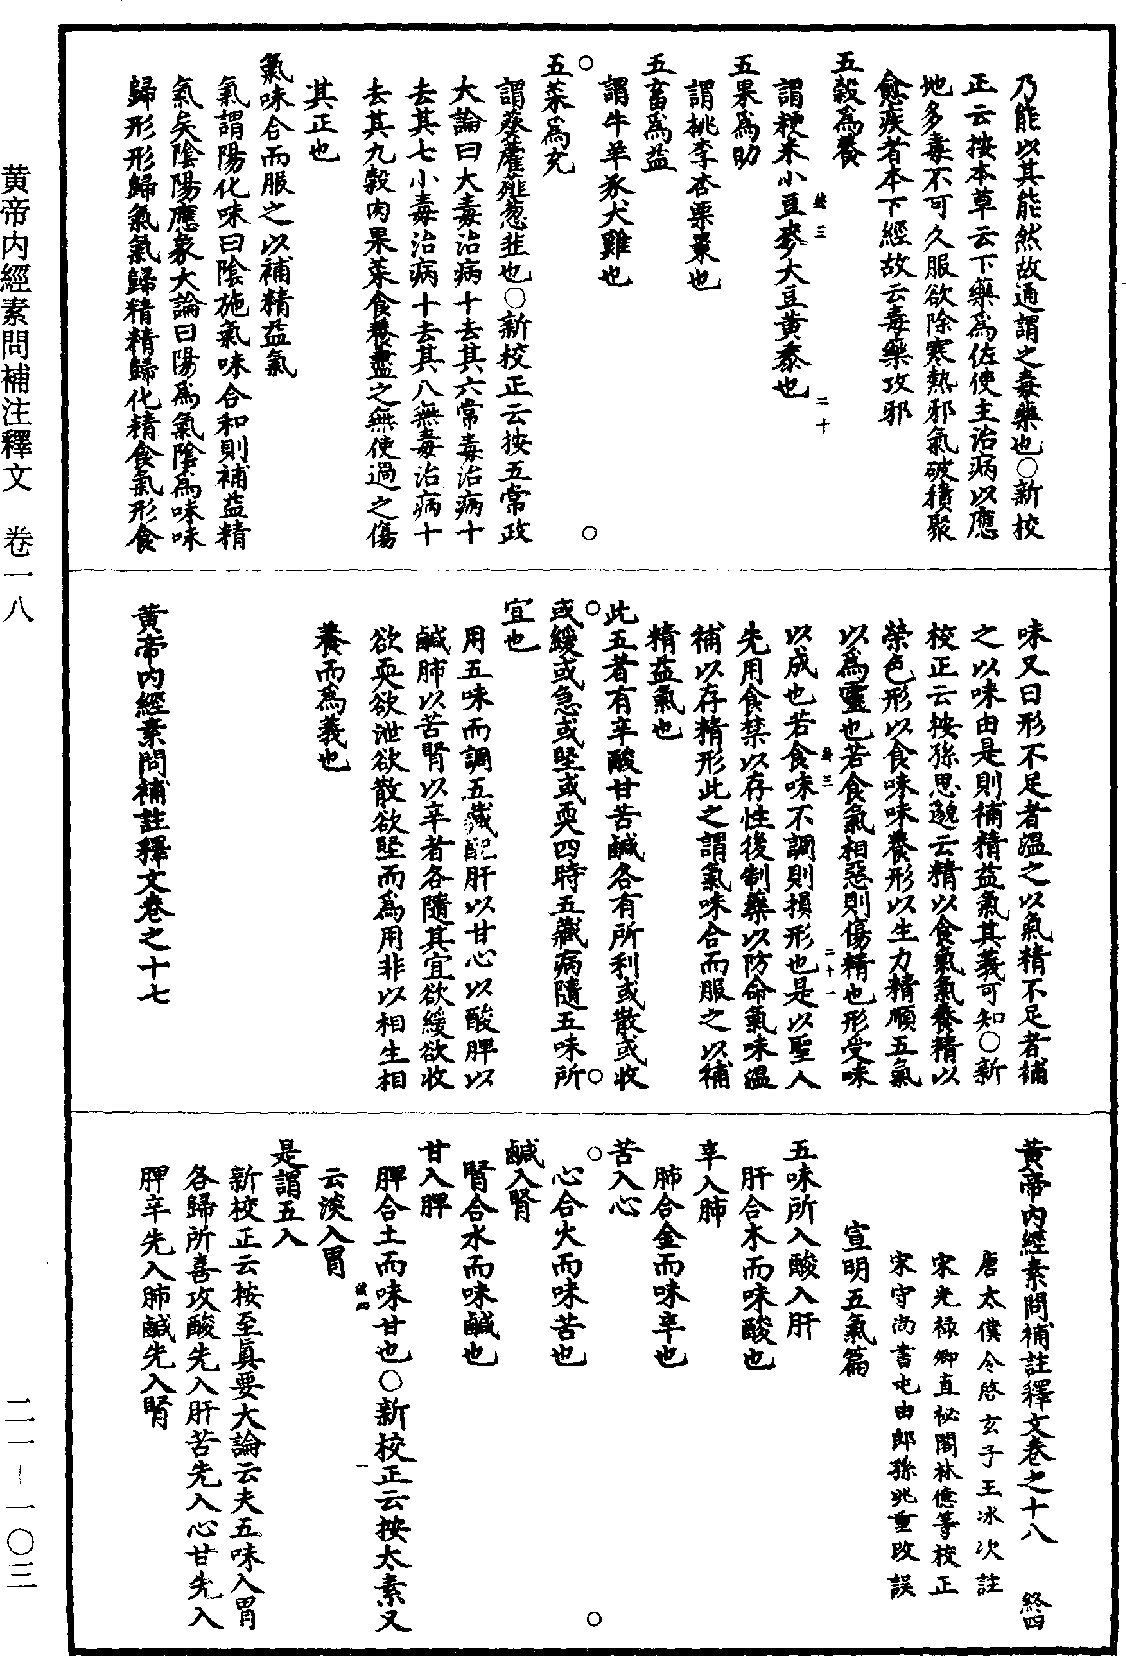 乃能以其能然故通謂之毒藥也○新校
正云按本草云下藥爲佐使主治病以應
地多毒不可久服欲除寒熱邪氣破積聚
愈疾者本下經故云毒藥攻邪
五穀爲養
謂粳米小豆麥大豆黃黍也
五果爲助
謂桃李杏栗棗也
五畜爲益
謂牛羊豕犬雞也
五菜爲充
謂葵藿薤葱韭也○新校正云按五常政
大論曰大毒治病十去其六常毒治病十
去其七小毒治病十去其八無毒治病十
去其九穀肉果菜食養盡之無使過之傷
其正也
氣味合而服之以補精益氣
氣謂陽化味曰陰施氣味合和則補益精
氣矣陰陽應象大論曰陽爲氣陰爲味味
歸形形歸氣氣歸精精歸化精食氣形食
味又曰形不足者溫之以氣精不足者補
之以味由是則補精益氣其義可知○新
校正云按孫思邈云精以食氣氣養精以
榮色形以食味味養形以生力精順五氣
以爲靈也若食氣相惡則傷精也形受味
以成也若食味不調則損形也是以聖人
先用食禁以存性後制藥以防命氣味溫
補以存精形此之謂氣味合而服之以補
精益氣也
此五者有辛酸甘苦鹹各有所利或散或收
或緩或急或堅或耎四時五藏病隨五味所
宜也
用五味而調五藏配肝以甘心以酸脾以
鹹肺以苦腎以辛者各隨其宜欲緩欲收
欲耎欲泄欲散欲堅而爲用非以相生相
養而爲義也
黃帝內經素問補註釋文卷之十七
黃帝內經素問補註釋文卷之十八 終四
唐太僕令啓玄子王冰次註
宋光祿卿直祕閣林億等校正
宋守尚書屯田郎孫兆重改誤
宣明五氣篇
五味所入酸入肝
肝合木而味酸也
辛入肺
肺合金而味辛也
苦入心
心合火而味苦也
鹹入腎
腎合水而味鹹也
甘入脾
脾合土而味甘也○新校正云按太素又
云淡入胃
是謂五入
新校正云按至眞要大論云夫五味入胃
各歸所喜攻酸先入肝苦先入心甘先入
脾辛先入肺鹹先入腎
黄帝內經素問補注釋文 卷一八
二一-一〇三